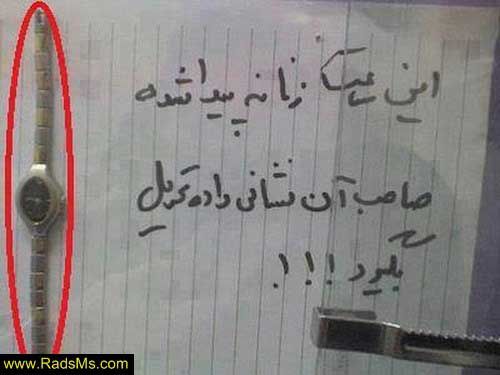 این ساعت زنانه پیدا شده
صاحب آن نشانی داده تحویل
بگیرد !!!
www.RadsMs.com